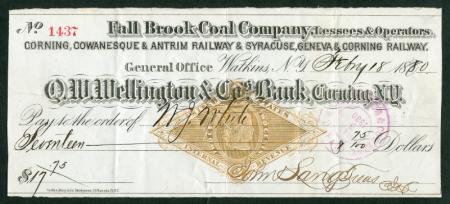 No. 1437
Fall Brook Coal Company, Lessees & Operators
CORNING, COWANESQUE & ANTRIM RAILWAY & SYRACUSE, GENEVA & CORNING RAILWAY.
General Office Watkins, N.Y. Feby 18 1880
Q.W. Wellington & Co's Bank, Corning N.Y.
Pay to the order of W J White
Seventeen 75/100 Dollars
$17 75
INTERNAL REVENUE
John Lang Treas